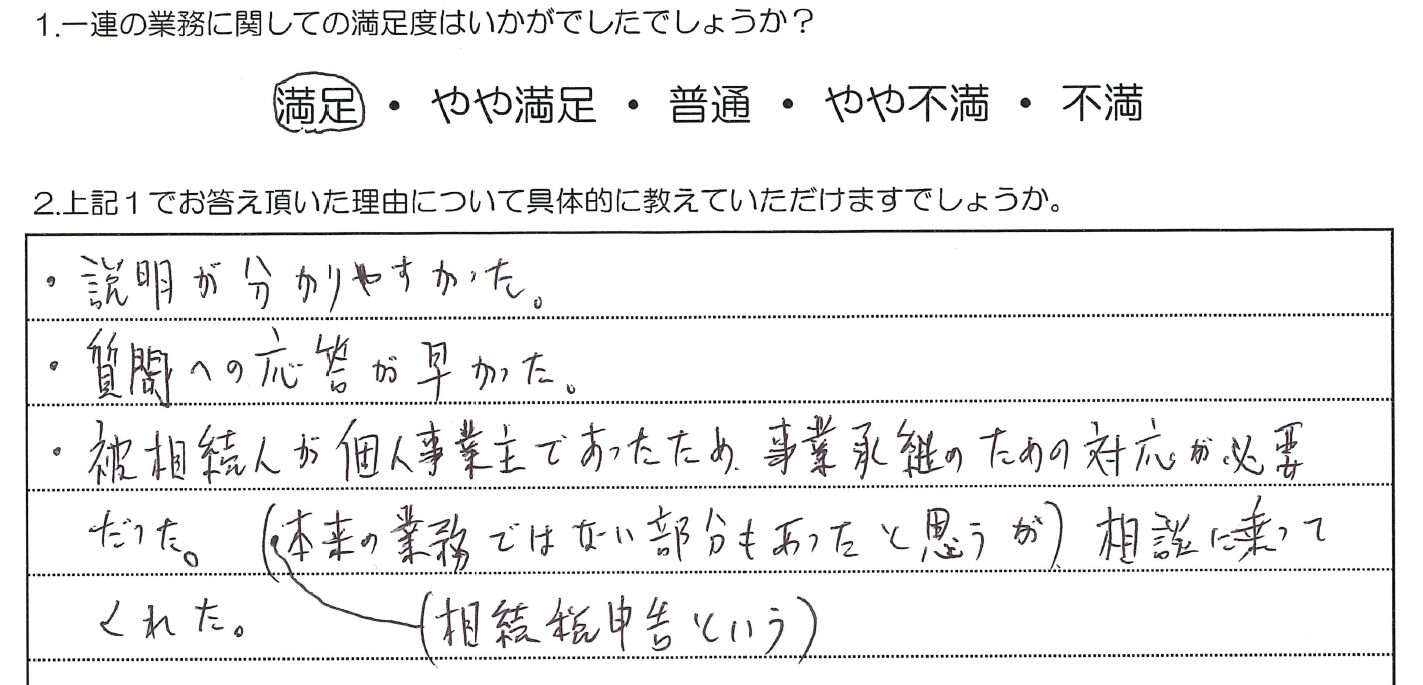 1.一連の業務に関しての満足度はいかがでしたでしょうか？
満足 ・ やや満足 ・ 普通 ・ やや不満 ・ 不満
2.上記１でお答え頂いた理由について具体的に教えていただけますでしょうか。
・説明が分かりやすかった。
・質問への応答が早かった。
・被相続人が個人事業主であったため、事業承継のための対応が必要
だった。(本来の業務ではない部分もあったと思うが) 相談に乗って
くれた。 (相続税申告という)